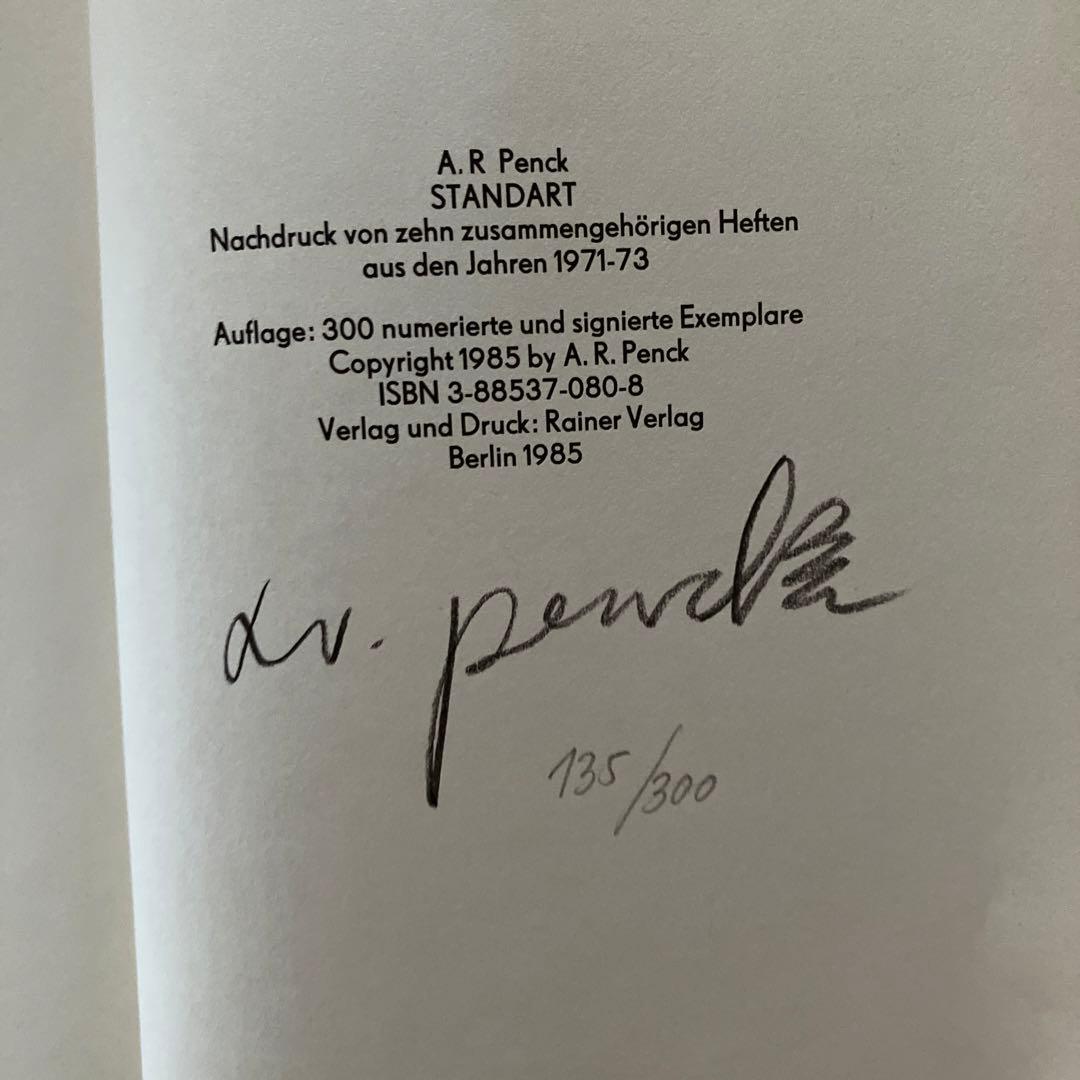 A.R Penck
STANDART
Nachdruck von zehn zusammengehörigen Heften
aus den Jahren 1971-73
Auflage: 300 numerierte und signierte Exemplare
Copyright 1985 by A. R. Penck
ISBN 3-88537-080-8
Verlag und Druck: Rainer Verlag
Berlin 1985
penck
135/300